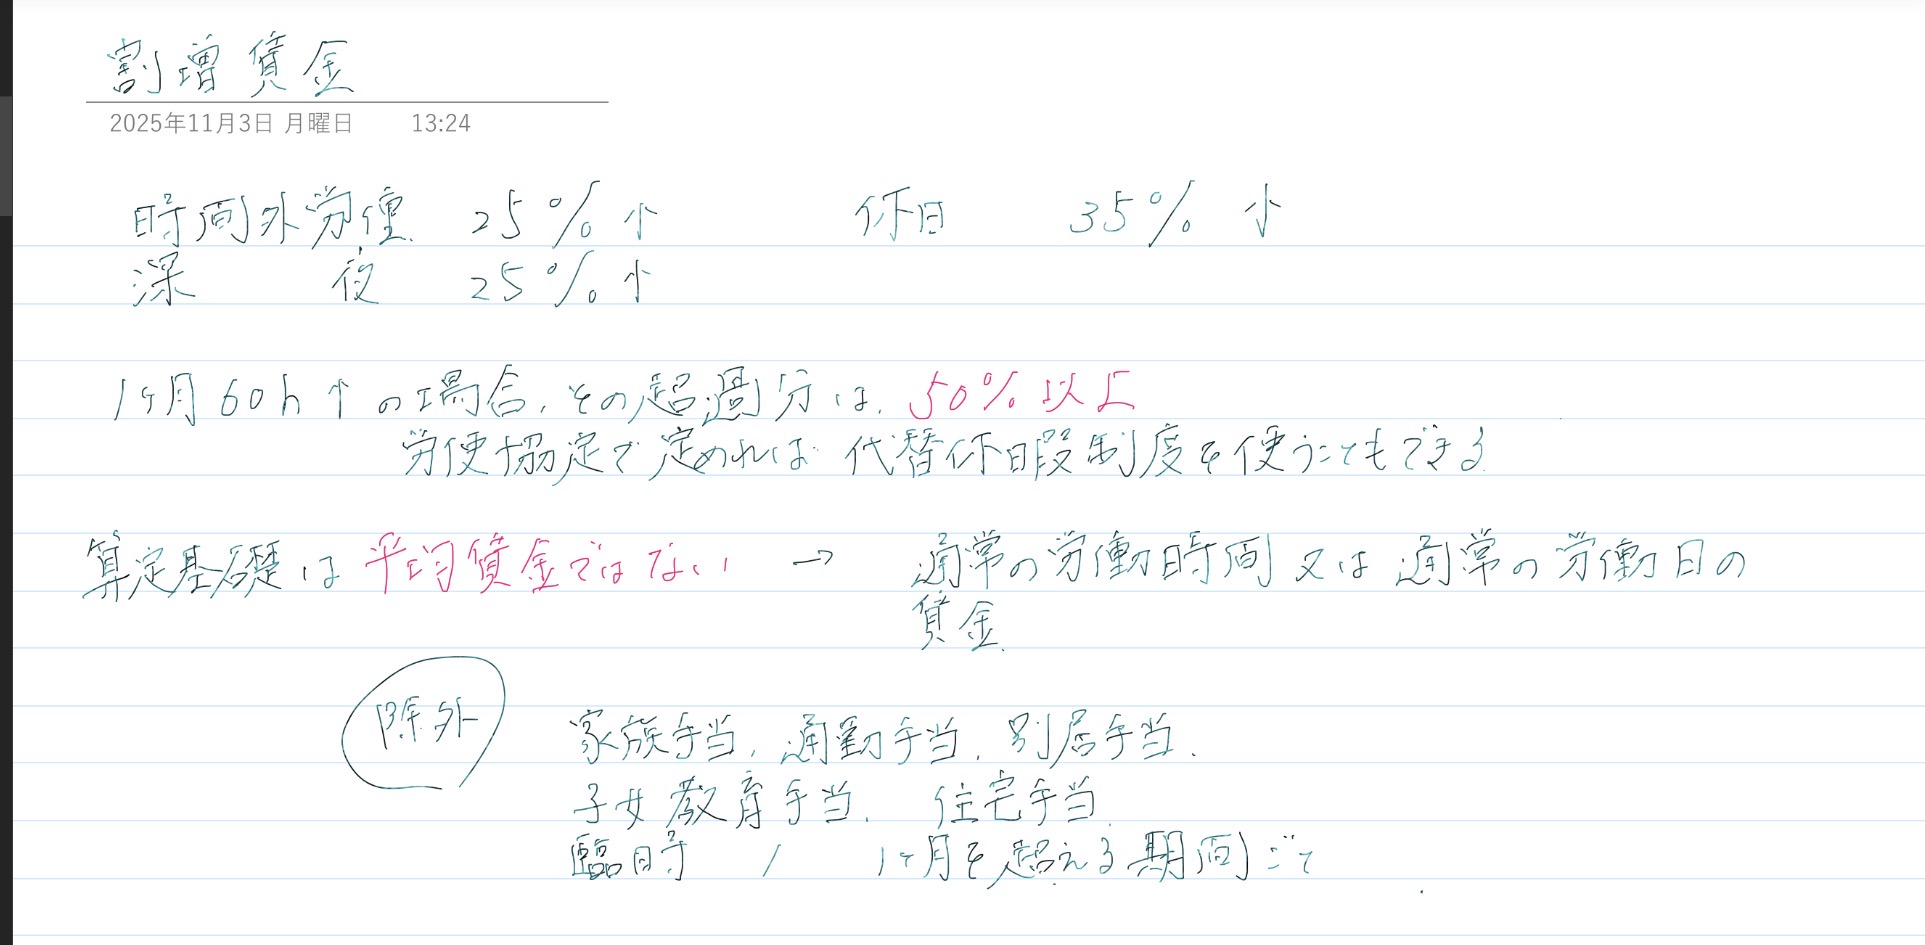 割増賃金
2025年11月3日 月曜日 13:24
時間外労働 25%↑ 休日 35%↑
深夜 25%↑
1ヶ月60h↑の場合、その超過分は、50%以上
労使協定で定めれば 代替休暇制度を使うこともできる
算定基礎は平均賃金ではない → 通常の労働時間又は通常の労働日の
賃金
除外
家族手当、通勤手当、別居手当、
子女教育手当、住宅手当
臨時 / 1ヶ月を超える期間ごと